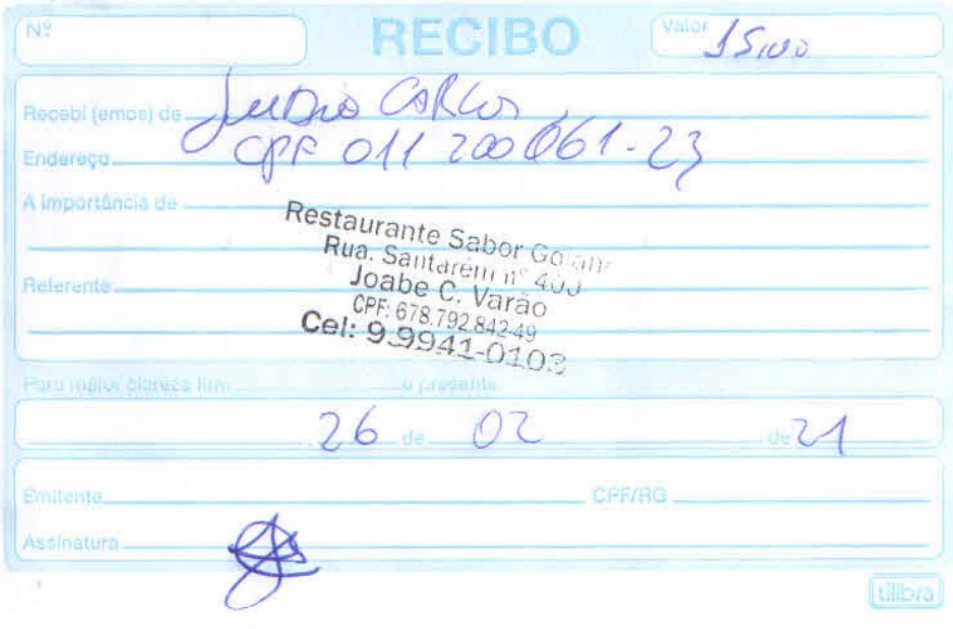 Nº RECIBO Valor 15,00
Recebi (emos) de CARLOS
Endereço CPF 011 200 061-23
A importância de
Restaurante Sabor
Rua. Santarém nº 400
Referente Joabe C. Varão
CPF: 678.792.842-49
Cel: 9.9941-0103
Para maior clareza firm o presente.
26 de 02 de 21
Emitente CPF/RG
Assinatura
tilibra